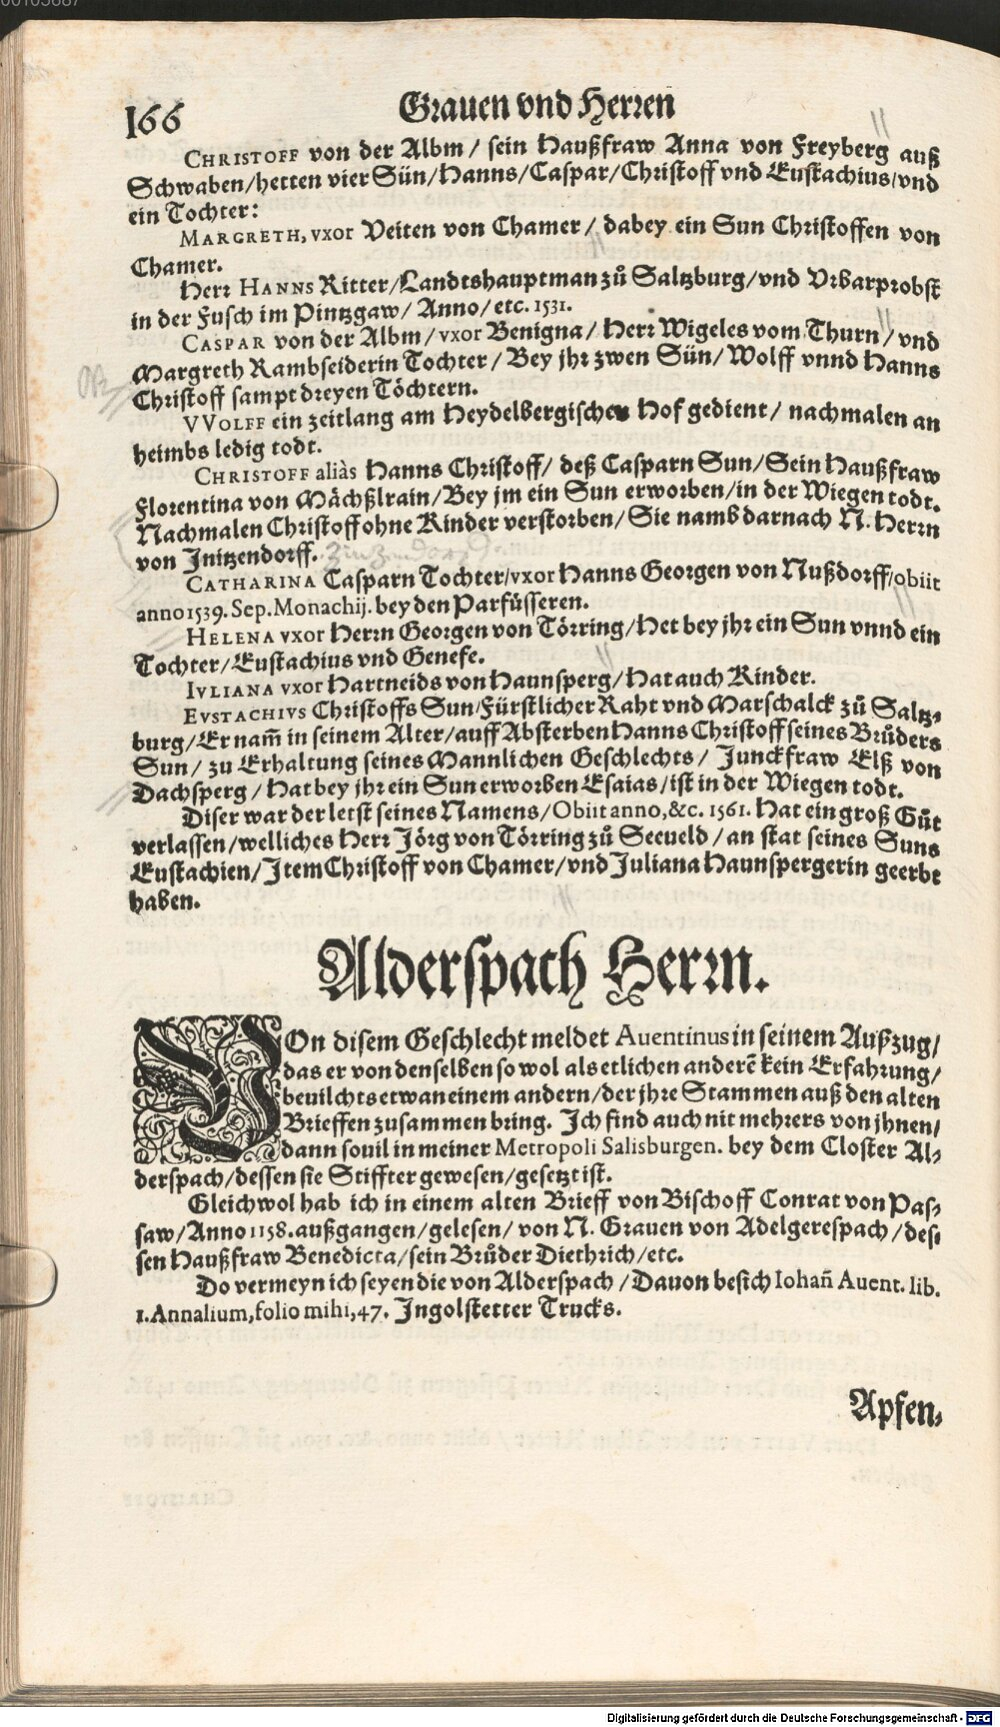 00105687
166 Grauen vnd Herren
CHRISTOFF von der Albm / sein Haußfraw Anna von Freyberg auß
Schwaben/hetten vier Sün/Hanns/Caspar/Christoff vnd Eustachius/vnd
ein Tochter:
MARGRETH, vxor Veiten von Chamer / dabey ein Sun Christoffen von
Chamer.
Herr HANNS Ritter/Landtshauptman zů Saltzburg/vnd Vrbarprobst
in der Fusch im Pintzgaw/ Anno/ etc. 1531.
CASPAR von der Albm/ vxor Benigna/ Herr Wigeles vom Thurn/ vnd
Margreth Rambseiderin Tochter/ Bey jhr zwen Sün/ Wolff vnnd Hanns
Christoff sampt dreyen Töchtern.
VVOLFF ein zeitlang am Heydelbergischen Hof gedient/ nachmalen an
heimbs ledig todt.
CHRISTOFF aliàs Hanns Christoff/ deß Casparn Sun/Sein Haußfraw
Florentina von Mächßlrain/Bey jm ein Sun erworben/in der Wiegen todt.
Nachmalen Christoff ohne Kinder verstorben/ Sie namb darnach N. Herrn
von Jnitzendorff. Zinzendorf
CATHARINA Casparn Tochter/vxor Hanns Georgen von Nußdorff/obiit
anno 1539. Sep. Monachij. bey den Parfüsseren.
HELENA vxor Herrn Georgen von Törring/Het bey jhr ein Sun vnnd ein
Tochter/Eustachius vnd Genefe.
IVLIANA vxor Hartneids von Haunsperg/ Hat auch Kinder.
EVSTACHIVS Christoffs Sun/Fürstlicher Raht vnd Marschalck zů Saltz⸗
burg/ Er nam̃ in seinem Alter/auff Absterben Hanns Christoff seines Brůders
Sun/ zu Erhaltung seines Mannlichen Geschlechts/ Junckfraw Elß von
Dachsperg/ Hat bey jhr ein Sun erworben Esaias/ist in der Wiegen todt.
Diser war der letst seines Namens/ Obiit anno, &c. 1561. Hat ein groß Gůt
verlassen/welliches Herr Jörg von Törring zů Seeueld/ an stat seines Suns
Eustachien/ Jtem Christoff von Chamer/vnd Juliana Haunspergerin geerbt
haben.
Alderspach Herrn.
VOn disem Geschlecht meldet Auentinus in seinem Außzug/
das er von denselben so wol als etlichen anderẽ kein Erfahrung/
beuilchts etwan einem andern/der jhre Stammen auß den alten
Brieffen zusammen bring. Jch find auch nit mehrers von jhnen/
dann souil in meiner Metropoli Salisburgen. bey dem Closter Al⸗
derspach/dessen sie Stiffter gewesen/gesetzt ist.
Gleichwol hab ich in einem alten Brieff von Bischoff Conrat von Pas⸗
saw/Anno 1158. außgangen/gelesen/ von N. Grauen von Adelgerespach/des⸗
sen Haußfraw Benedicta/sein Brůder Diethrich/etc.
Do vermeyn ich seyen die von Alderspach/ Dauon besich Iohañ Auent. lib.
1. Annalium, folio mihi, 47. Jngolstetter Trucks.
Apfen⸗
Digitalisierung gefördert durch die Deutsche Forschungsgemeinschaft - DFG